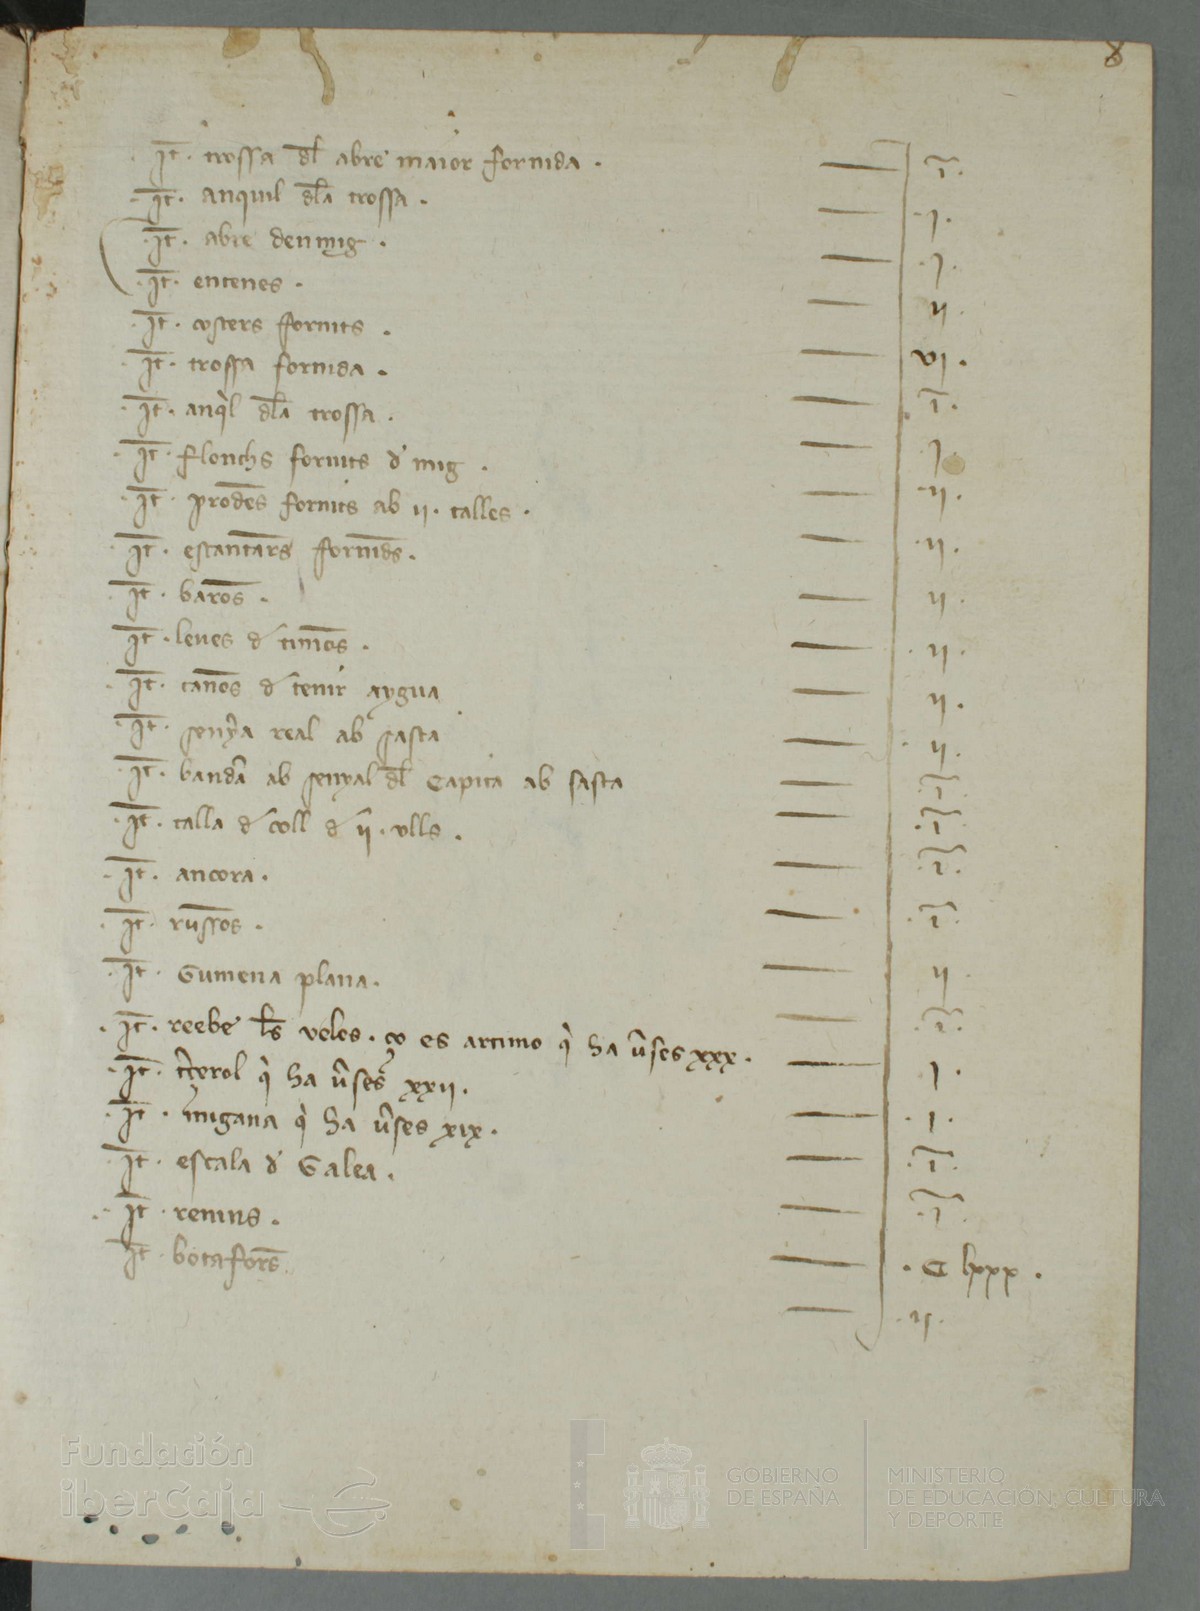 8
It. trossa dl abre maior fornida . ı̅.
It. anquil dla trossa . ȷ.
It. abre denmig . ȷ.
It. entenes . ıȷ.
It. costers fornits . vȷ.
It. trossa fornida . ı̅.
It. anql dla trossa . ȷ.
It. flonchs fornits d mig . ıȷ.
It. prodes fornits ab ıȷ. talles . ıȷ.
It. escantars fornids . ıȷ.
It. baros . ıȷ.
It. leues d timos . ıȷ.
It. canos d tenir aygua ıȷ.
It. senya real ab sasta ı̅.
It. banda ab senyal dl Capita ab sasta ı̅.
It. talla d coll d ıȷ. vlls . ı̅.
It. ancora . ı̅.
It. russos . ıȷ
It. Gumena plana . ı̅.
It. reebe ls veles . ço es artimo q ha vses xxx . ȷ.
It. terol q ha vses xxıȷ . ı.
It. migana q ha vses xıx . ı̅.
It. escala d Galea . ı̅.
It. remns . C lxxx .
It. botafors ıȷ.
Fundación
iberCaja
GOBIERNO
DE ESPAÑA
MINISTERIO
DE EDUCACIÓN, CULTURA
Y DEPORTE